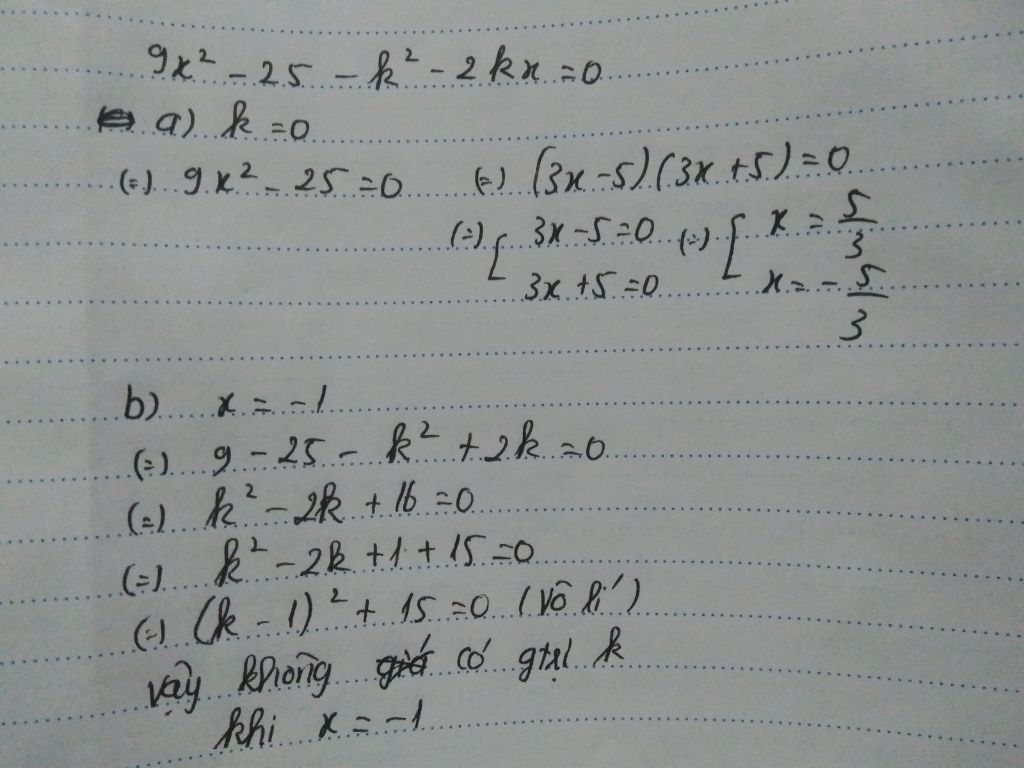 9x² - 25 - k² - 2kx = 0
a) k = 0
(=) 9x² - 25 = 0 (=) (3x - 5)(3x + 5) = 0
(=) [ 3x - 5 = 0 (=) [ x = 5/3
3x + 5 = 0 x = - 5/3
b) x = -1
(=) 9 - 25 - k² + 2k = 0
(=) k² - 2k + 16 = 0
(=) k² - 2k + 1 + 15 = 0
(=) (k - 1)² + 15 = 0 (vô lí)
vậy không có gtrị k
khi x = -1